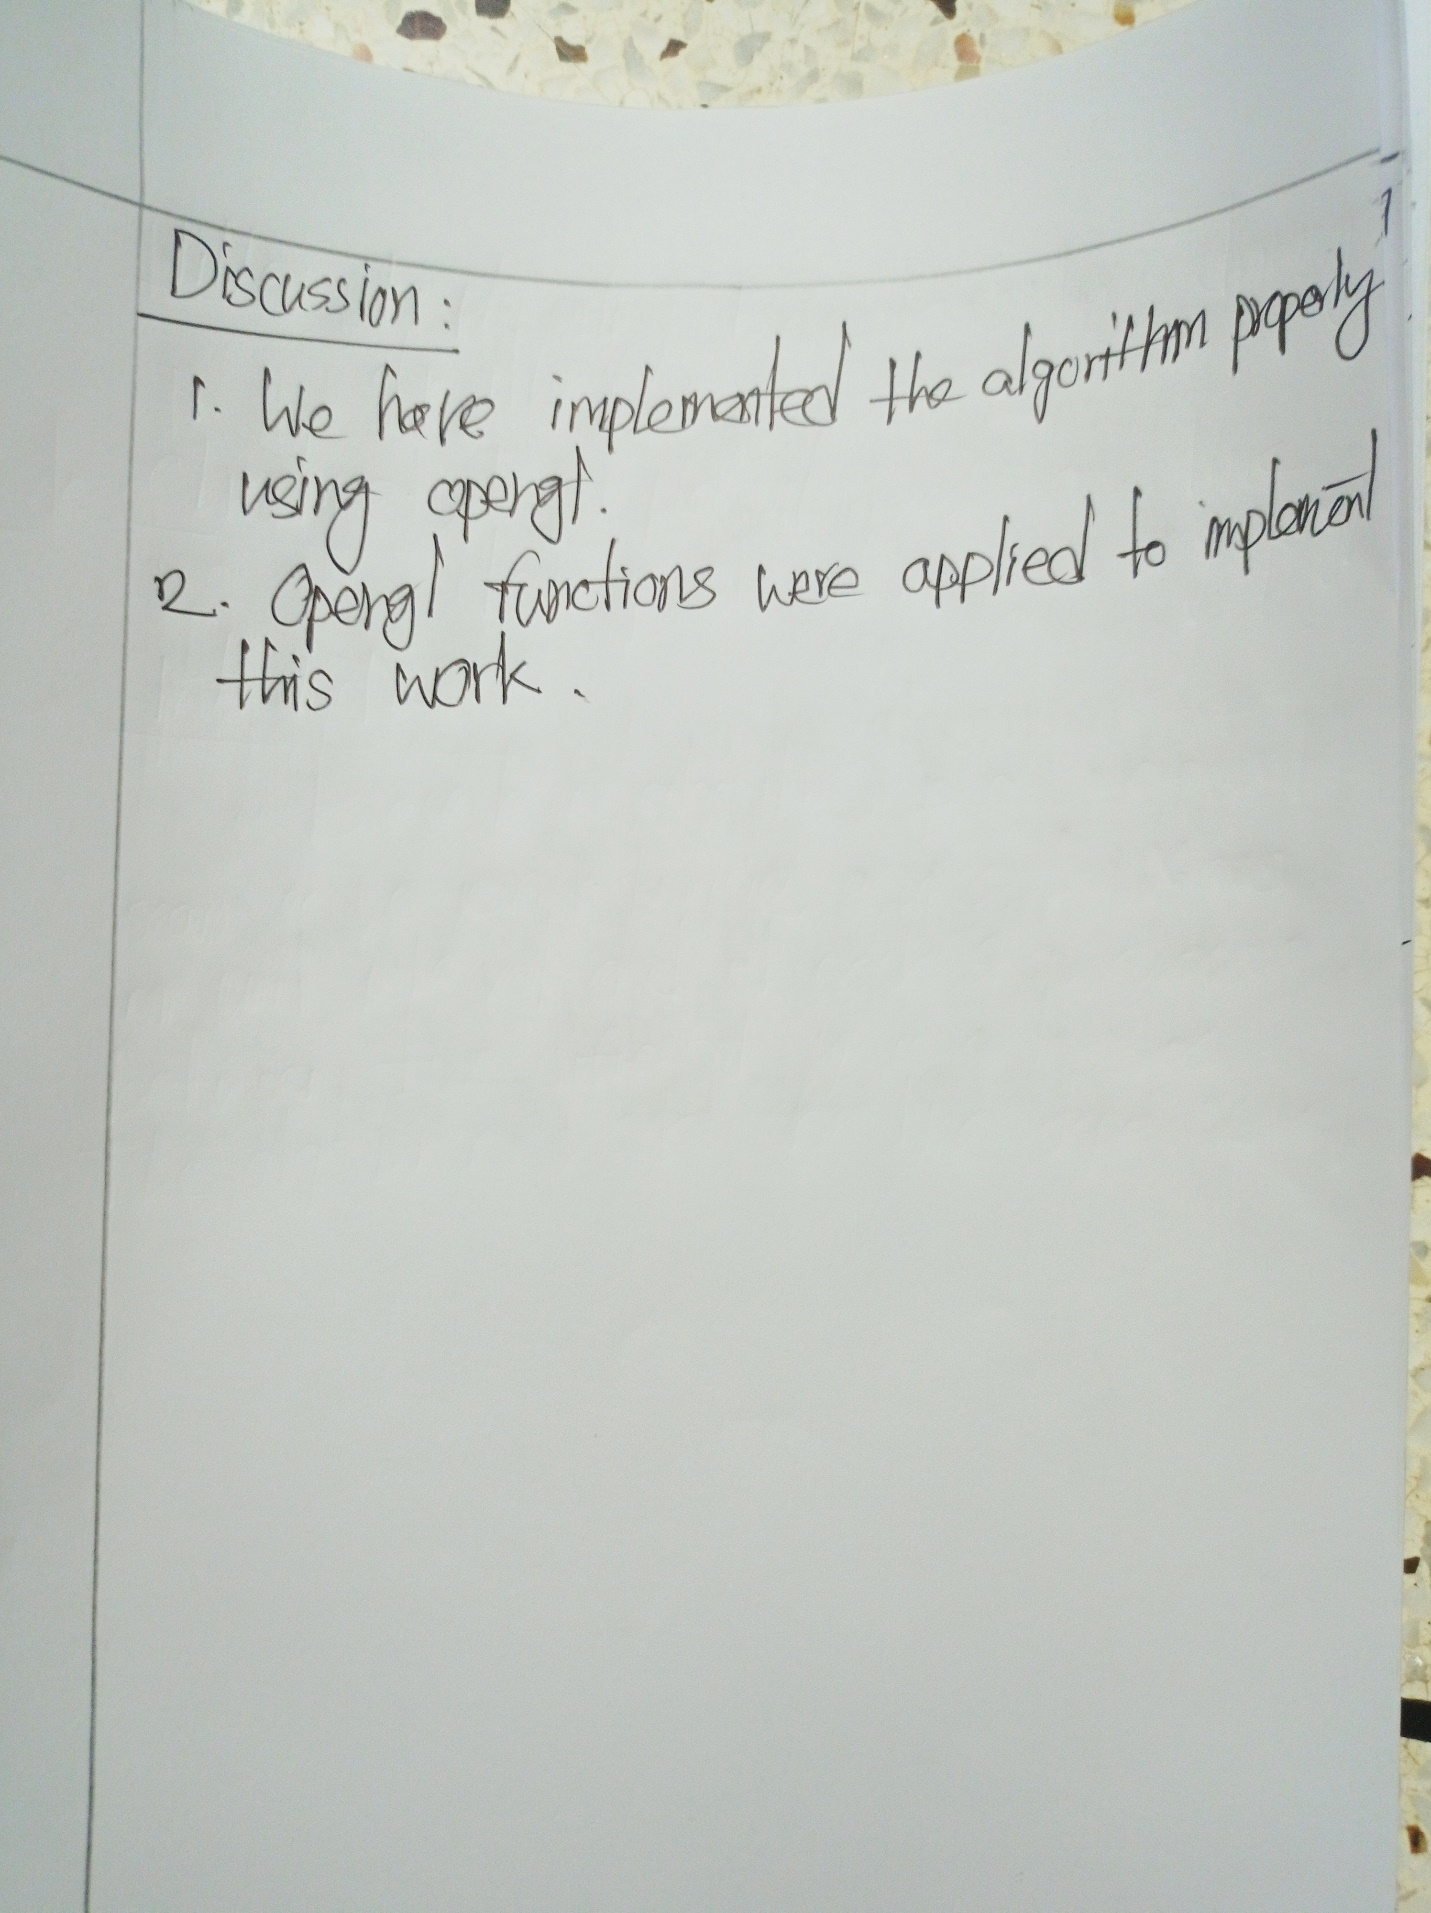 Discussion:
1. We have implemented the algorithm properly
using opengl.
2. Opengl functions were applied to implement
this work.